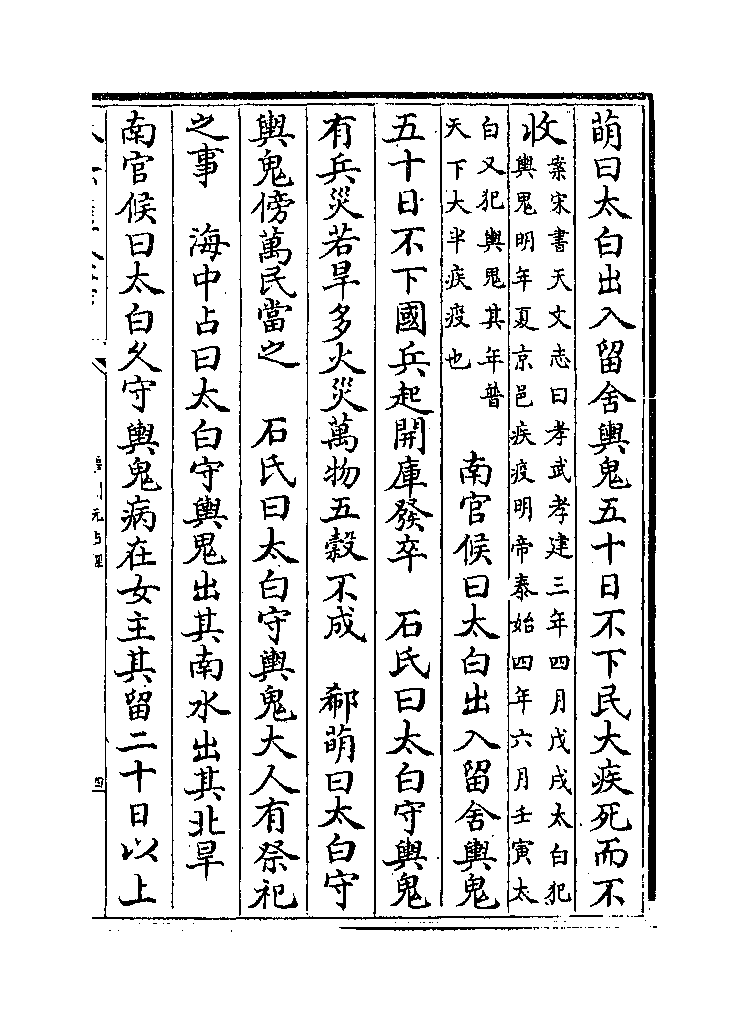 萌曰太白出入留舍輿鬼五十日不下民大疾死而不
收案宋書天文志曰孝武孝建三年四月戊戌太白犯
輿鬼明年夏京邑疾疫明帝泰始四年六月壬寅太
白又犯輿鬼其年普
天下大半疾疫也　南官候曰太白出入留舍輿鬼
五十日不下國兵起開庫發卒　石氏曰太白守輿鬼
有兵災若旱多火災萬物五穀不成　郗萌曰太白守
輿鬼傍萬民當之　石氏曰太白守輿鬼大人有祭祀
之事　海中占曰太白守輿鬼出其南水出其北旱
南官候曰太白久守輿鬼病在女主其留二十日以上
四